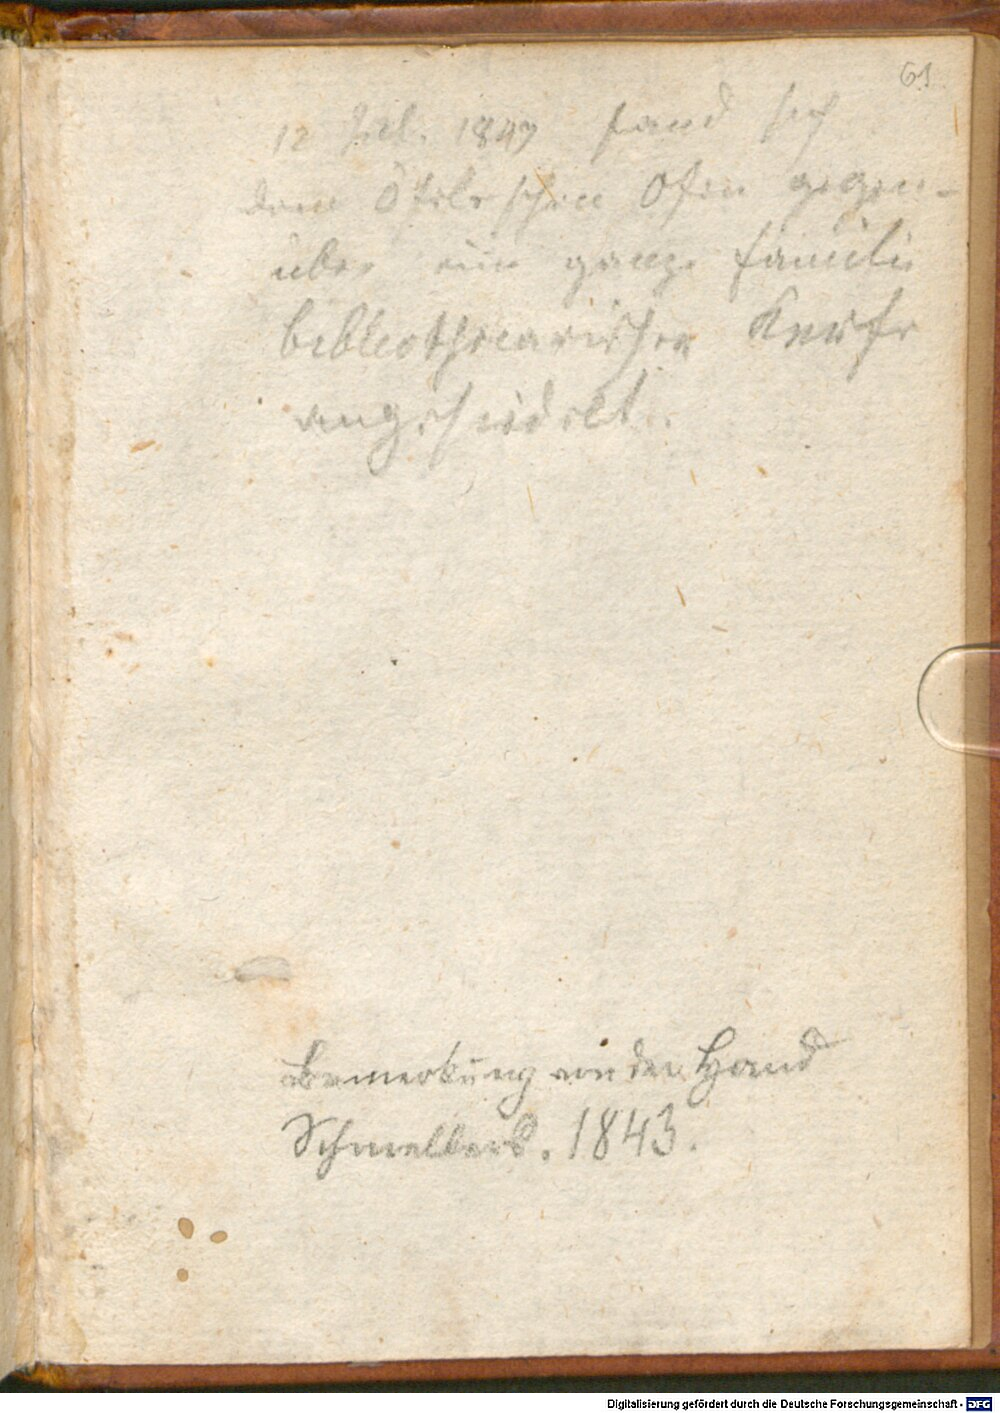 61
12 Jul. 1847 fand sich
dem schen Ofen gegen-
über eine ganze Familie
bibliothecarischer
angesiedelt.
Bemerkung von der Hand
Schmellers. 1843.
Digitalisierung gefördert durch die Deutsche Forschungsgemeinschaft - DFG